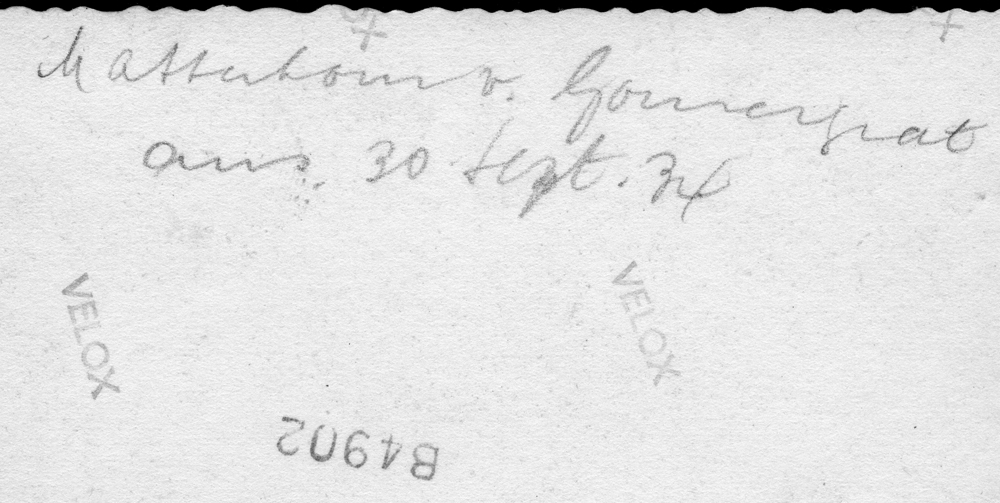 Matterhorn v. Gornergrat
aus. 30 Sept. 34
VELOX
VELOX
B4902